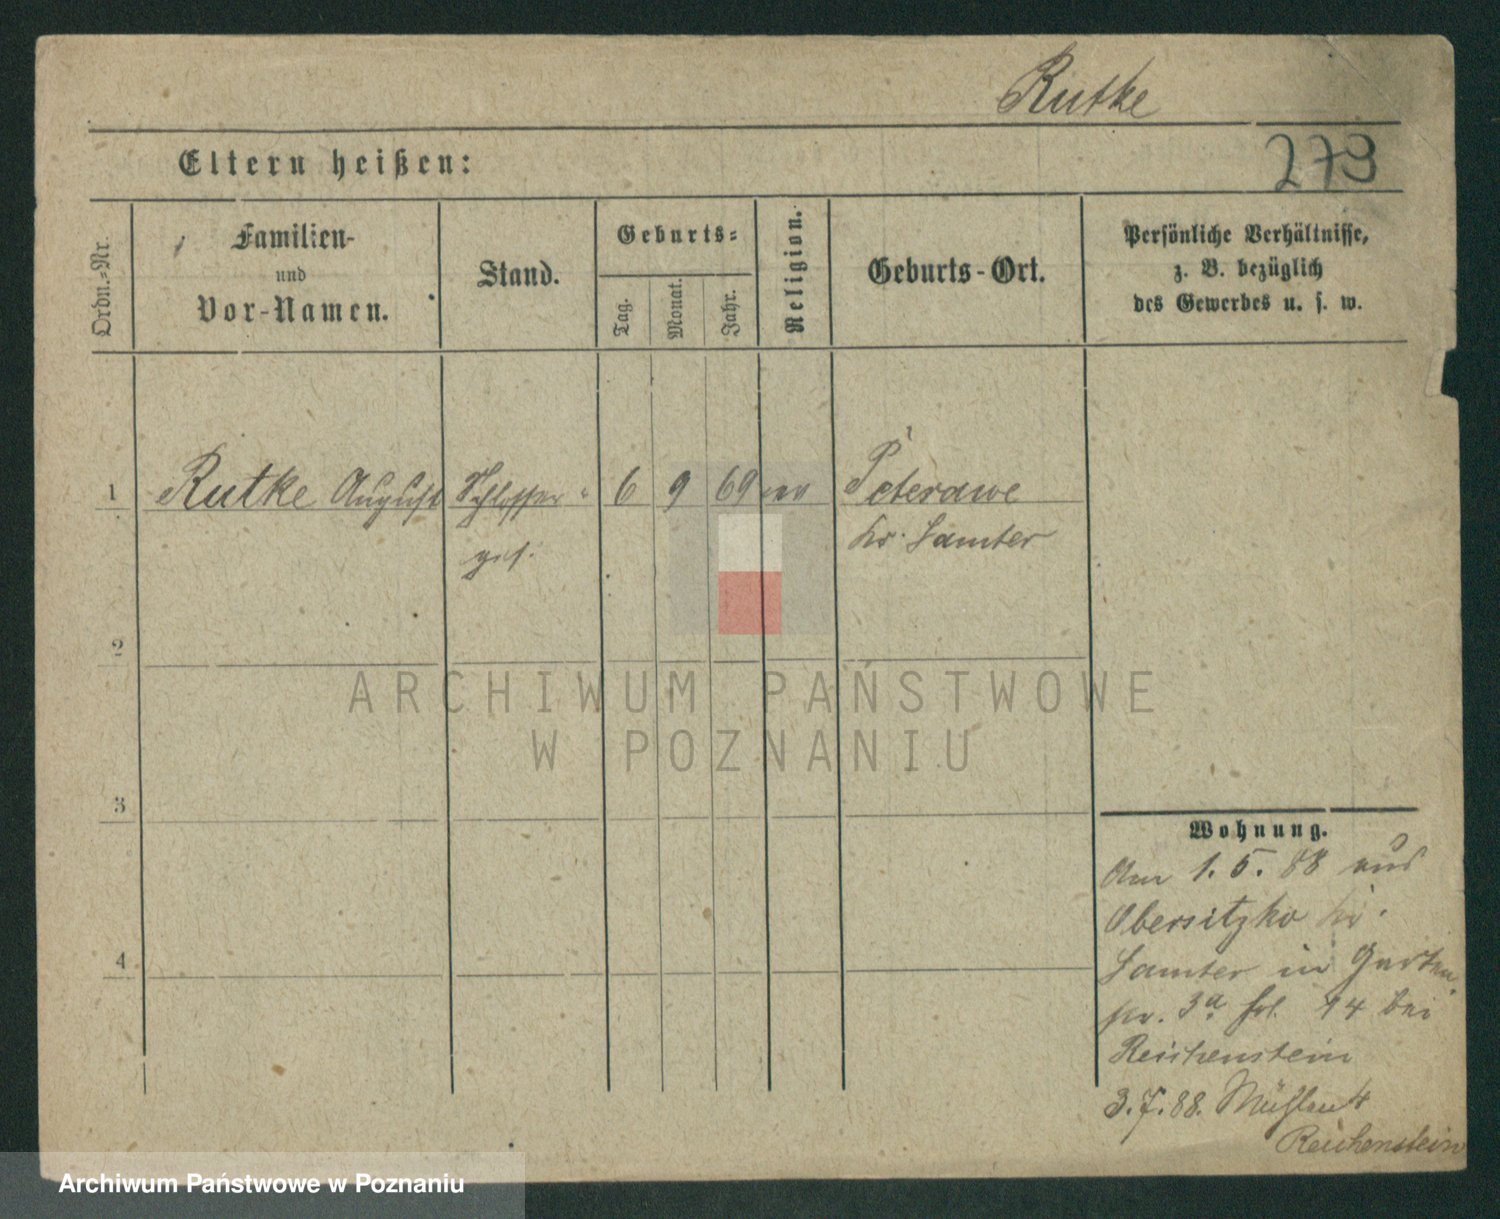 Rutke
273
Eltern heißen:
Ordn.-Nr.
Familien-
und
Vor-Namen.
Stand.
Geburts-
Tag.
Monat.
Jahr.
Religion.
Geburts-Ort.
Persönliche Verhältnisse,
z. B. bezüglich
des Gewerbes u. s. w.
1 Rutke August Schlosser- 6 9 69 Peterawe
ges. Kr. Samter
2
3
4
Wohnung.
Am 1.5.88 aus
Obersitzko Kr.
Samter in Garten
3a 14 bei
Reichenstein
3.7.88. Mühlen 4
Reichenstein
ARCHIWUM PAŃSTWOWE
W POZNANIU
Archiwum Państwowe w Poznaniu